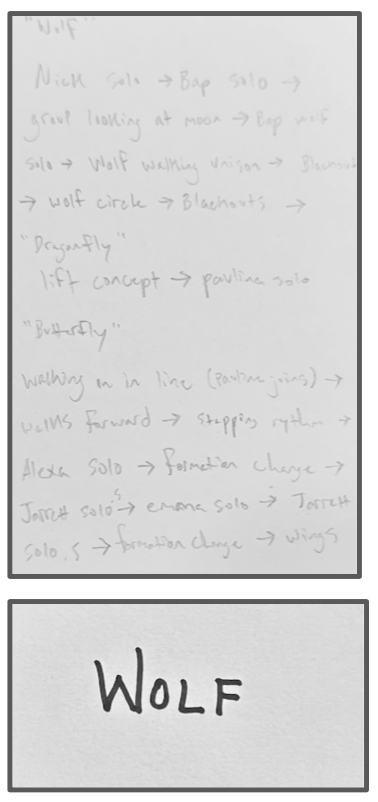 "Wolf"
Nick solo → Bap solo →
group looking at moon → Bap wolf
solo → Wolf walking unison → Blackout
→ wolf circle → Blackouts →
"Dragonfly"
lift concept → paulina solo
"Butterfly"
walking on in line (paulina joins) →
walks forward → stepping rythm →
Alexa solo → formation change →
Jarrett solo .5 → emma solo → Jarrett
solo .5 → formation change → wings
WOLF